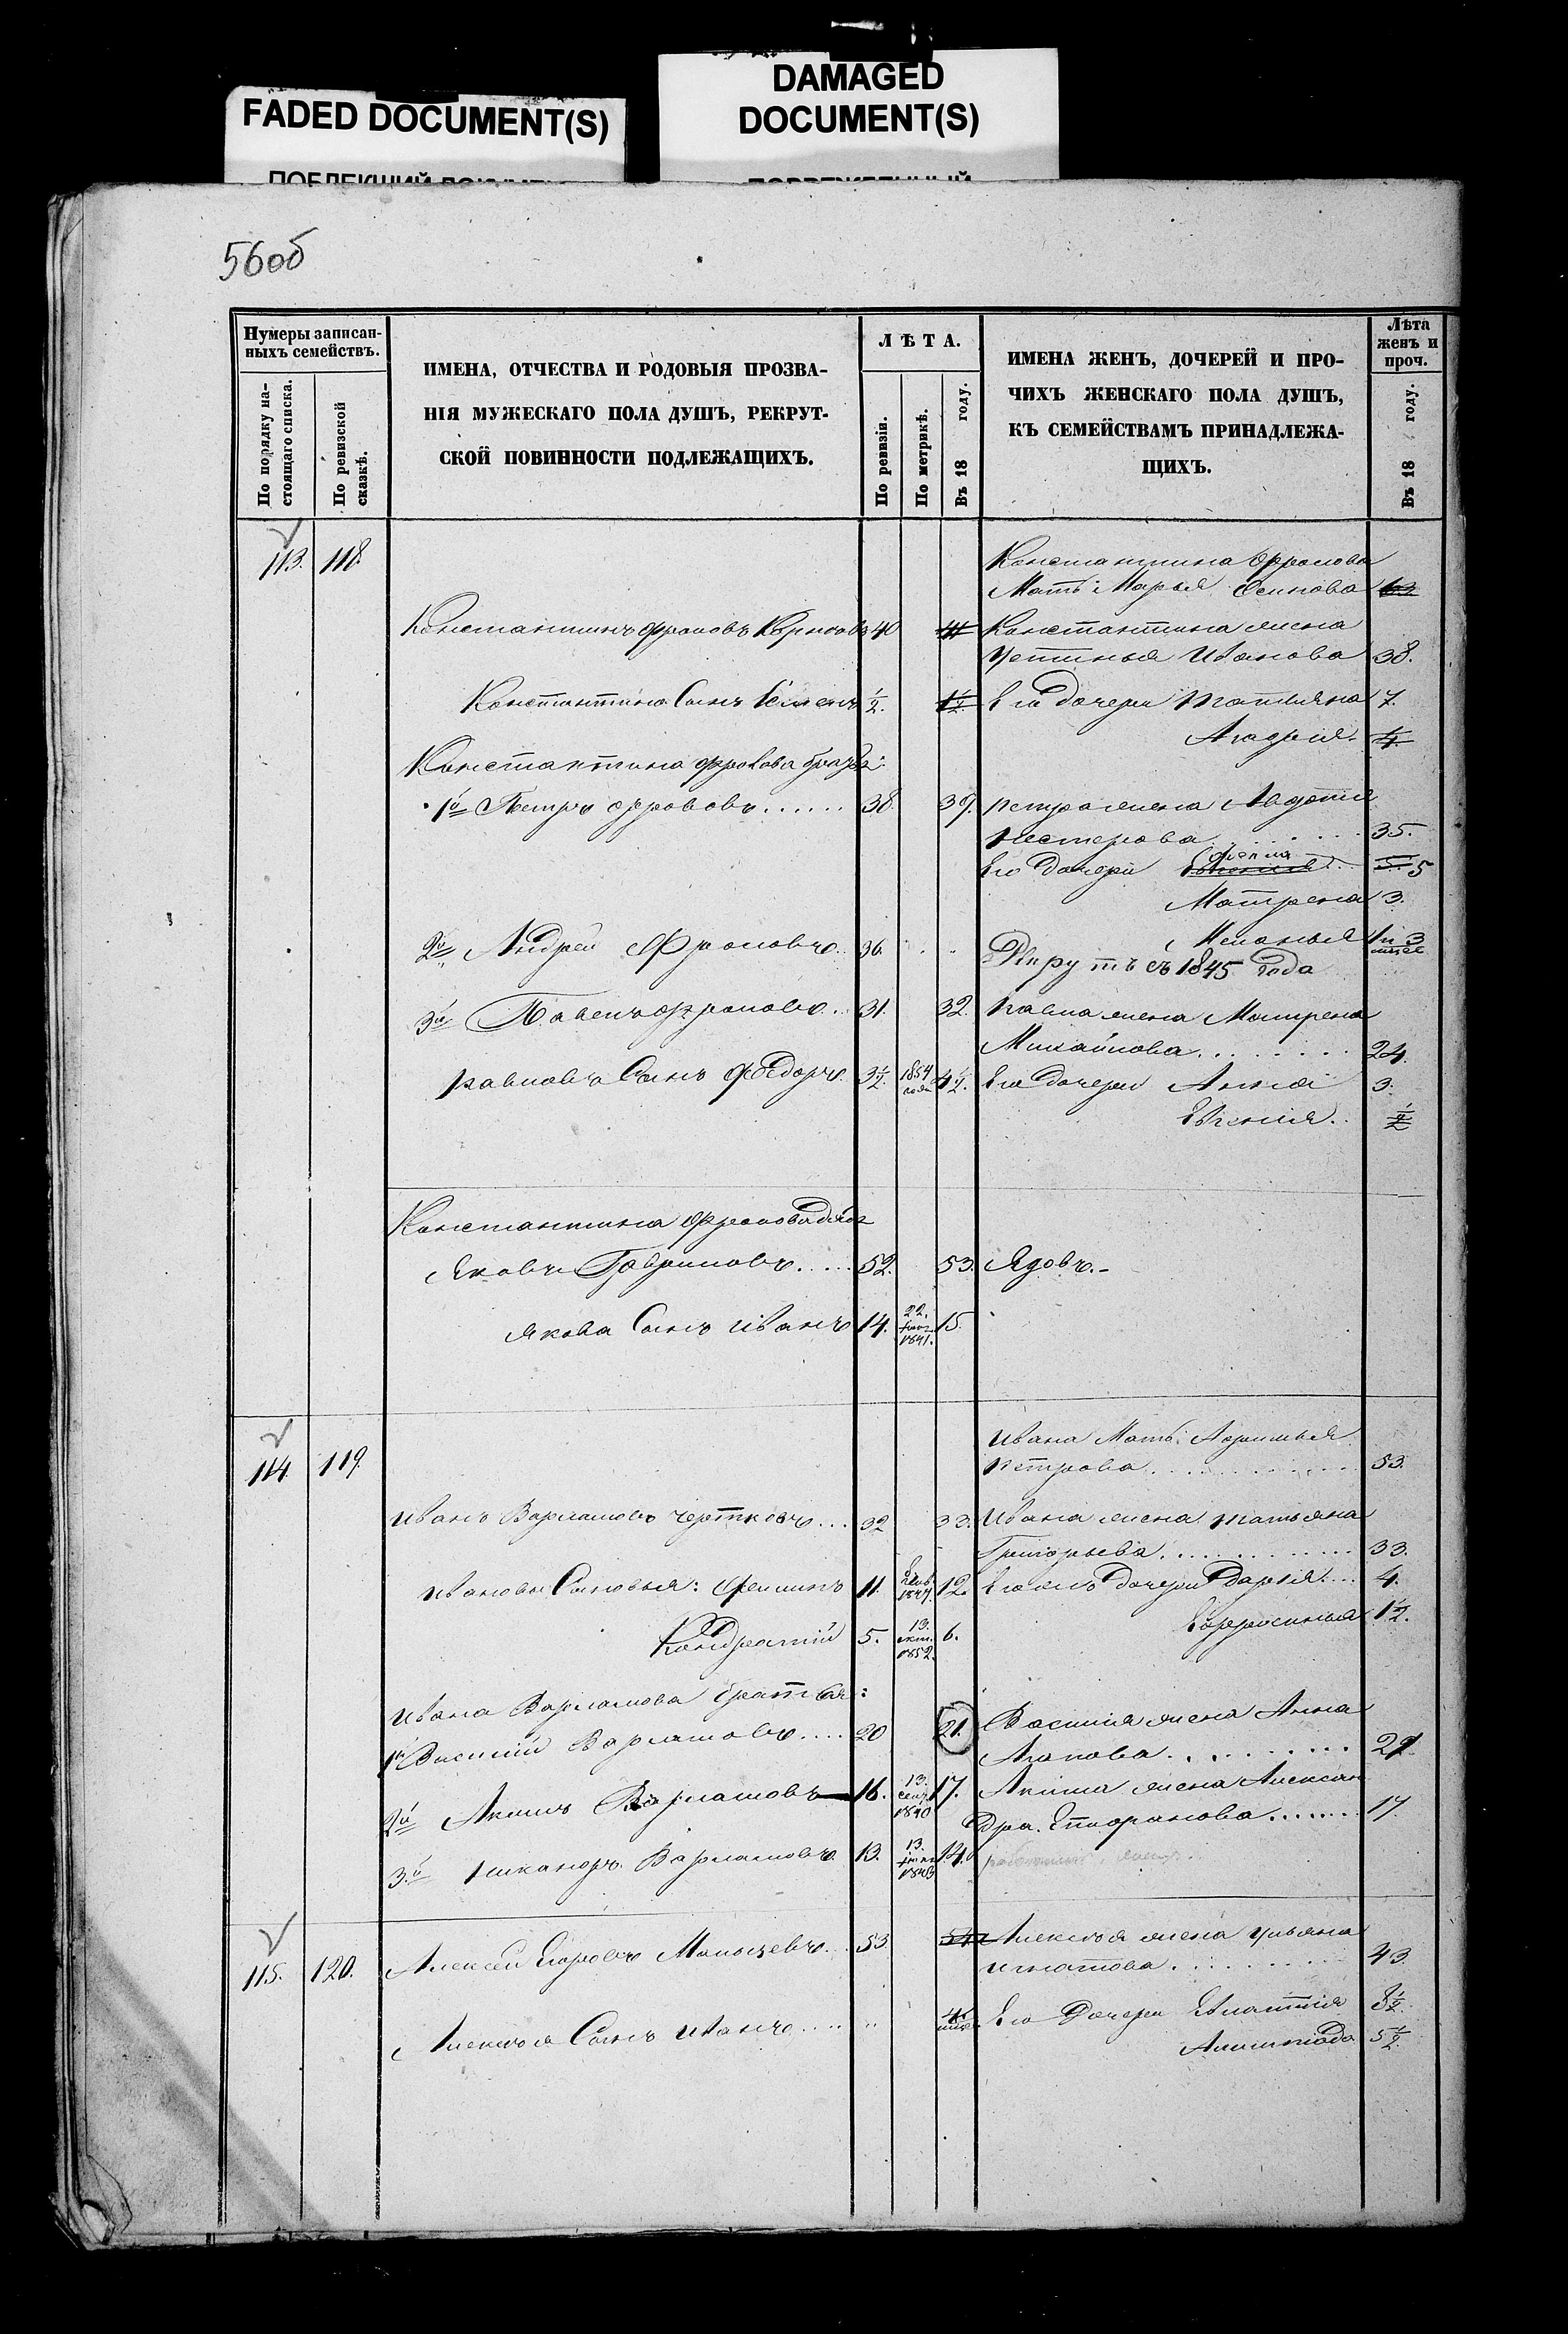 FADED DOCUMENT(S)
DAMAGED
DOCUMENT(S)
56об
Нумеры записан-
ныхъ семействъ.
По порядку на-
стоящаго списка.
По ревизской
сказкѣ.
ИМЕНА, ОТЧЕСТВА И РОДОВЫЯ ПРОЗВА-
НІЯ МУЖЕСКАГО ПОЛА ДУШЪ, РЕКРУТ-
СКОЙ ПОВИННОСТИ ПОДЛЕЖАЩИХЪ.
ЛѢТА.
По ревизіи.
По метрикѣ.
Въ 18 году.
ИМЕНА ЖЕНЪ, ДОЧЕРЕЙ И ПРО-
ЧИХЪ ЖЕНСКАГО ПОЛА ДУШЪ,
КЪ СЕМЕЙСТВАМЪ ПРИНАДЛЕЖА-
ЩИХЪ.
Лѣта
женъ и
проч.
Въ 18 году.
113. 118.
Константина Фролова
Мать Марья Осипова 62
Константинъ Фроловъ 40 41 Константина жена
Устинья Иванова 38.
Константина Сынъ Семенъ ½. 1½. Его дочери Татьяна 7.
4.
Константина Фролова братья:
1й Петръ Фроловъ...... 38. 39. Петра жена Авдотья
Нестерова 35.
Его дочери 5
Матрена 3.
Меланья 1 и 3
2й Андрей Фроловъ.. 36. Рекрутъ съ 1845 года
3й Павелъ Фроловъ.. 31. 32. Павла жена Матрена
Михайлова........ 24.
Павловъ Сынъ Федоръ. 3½. 1854 года 4½. Его дочери Анна 3.
Евгенія.. ½
Константина Фролова дядя
Яковъ Гавриловъ..... 52. 53. Вдовъ.-
Якова Сынъ Иванъ 14. 22. 1841. 15.
114. 119.
Ивана Мать
Петрова............ 53.
Иванъ Варламовъ Чертковъ... 32 33. Ивана жена Татьяна
Григорьева............. 33.
Ивановы Сыновья: Филипъ 11. 12. Его же дочери Дарья... 4.
Кондратій 5. 13. окт. 1852. 6. Ефросинья 1½.
Ивана Варламова братья:
1й Василий Варламовъ.... 20 21. Василия жена Анна
Агапова.......... 21.
2й Акимъ Варламовъ 16. 13. сент. 1840 17. Акима жена Алексан
дра Епифанова....... 17.
3й Никаноръ Варламовъ. 13. 13. 1843 14.
115. 120. Алексей Егоровъ 53. 54. Алексея жена Ульяна
Игнатова.......... 43.
Алексея Сынъ Иванъ.... Его дочери Евлампия 8½.
5½.